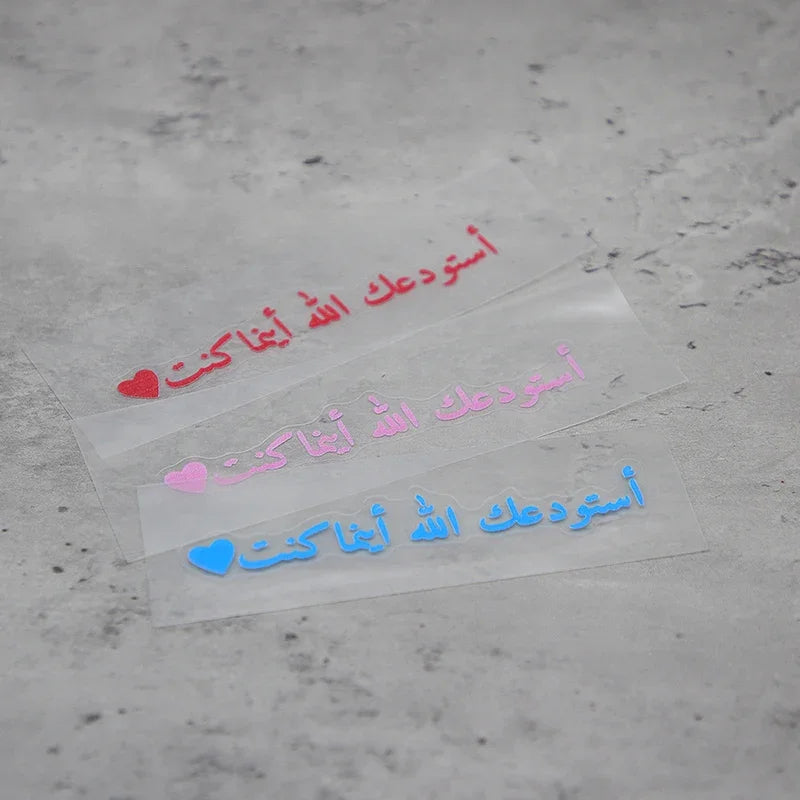 أستودعك الله أينما كنت
أستودعك الله أينما كنت
أستودعك الله أينما كنت